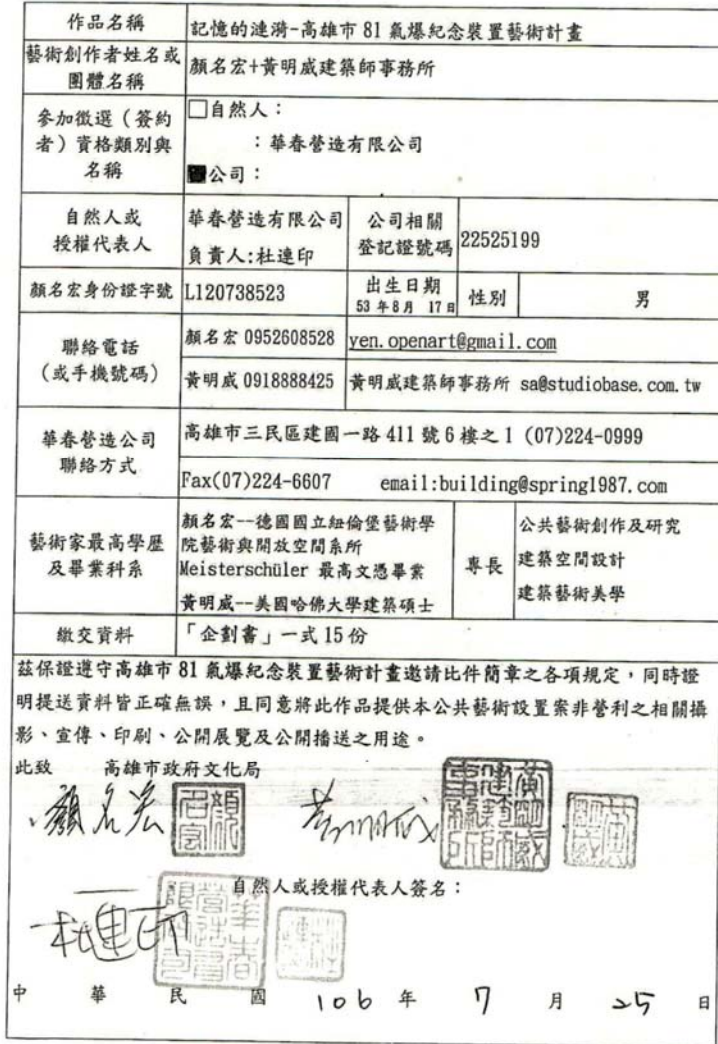 作品名稱
記憶的漣漪-高雄市 81 氣爆紀念裝置藝術計畫
藝術創作者姓名或
團體名稱
顏名宏+黃明威建築師事務所
參加徵選（簽約
者）資格類別與
名稱
□自然人：
：華春營造有限公司
■公司：
自然人或
授權代表人
華春營造有限公司
負責人:杜連印
公司相關
登記證號碼
22525199
顏名宏身份證字號
L120738523
出生日期
53 年 8 月 17 日
性別
男
聯絡電話
（或手機號碼）
顏名宏 0952608528
yen.openart@gmail.com
黃明威 0918888425
黃明威建築師事務所 sa@studiobase.com.tw
華春營造公司
聯絡方式
高雄市三民區建國一路 411 號 6 樓之 1 (07)224-0999
Fax(07)224-6607 email:building@spring1987.com
藝術家最高學歷
及畢業科系
顏名宏--德國國立紐倫堡藝術學
院藝術與開放空間系所
Meisterschüler 最高文憑畢業
黃明威--美國哈佛大學建築碩士
專長
公共藝術創作及研究
建築空間設計
建築藝術美學
繳交資料
「企劃書」一式 15 份
茲保證遵守高雄市 81 氣爆紀念裝置藝術計畫邀請比件簡章之各項規定，同時證
明提送資料皆正確無誤，且同意將此作品提供本公共藝術設置案非營利之相關攝
影、宣傳、印刷、公開展覽及公開播送之用途。
此致 高雄市政府文化局
顏名宏
黃明威
自然人或授權代表人簽名：
杜連印
中華民國 106 年 7 月 25 日